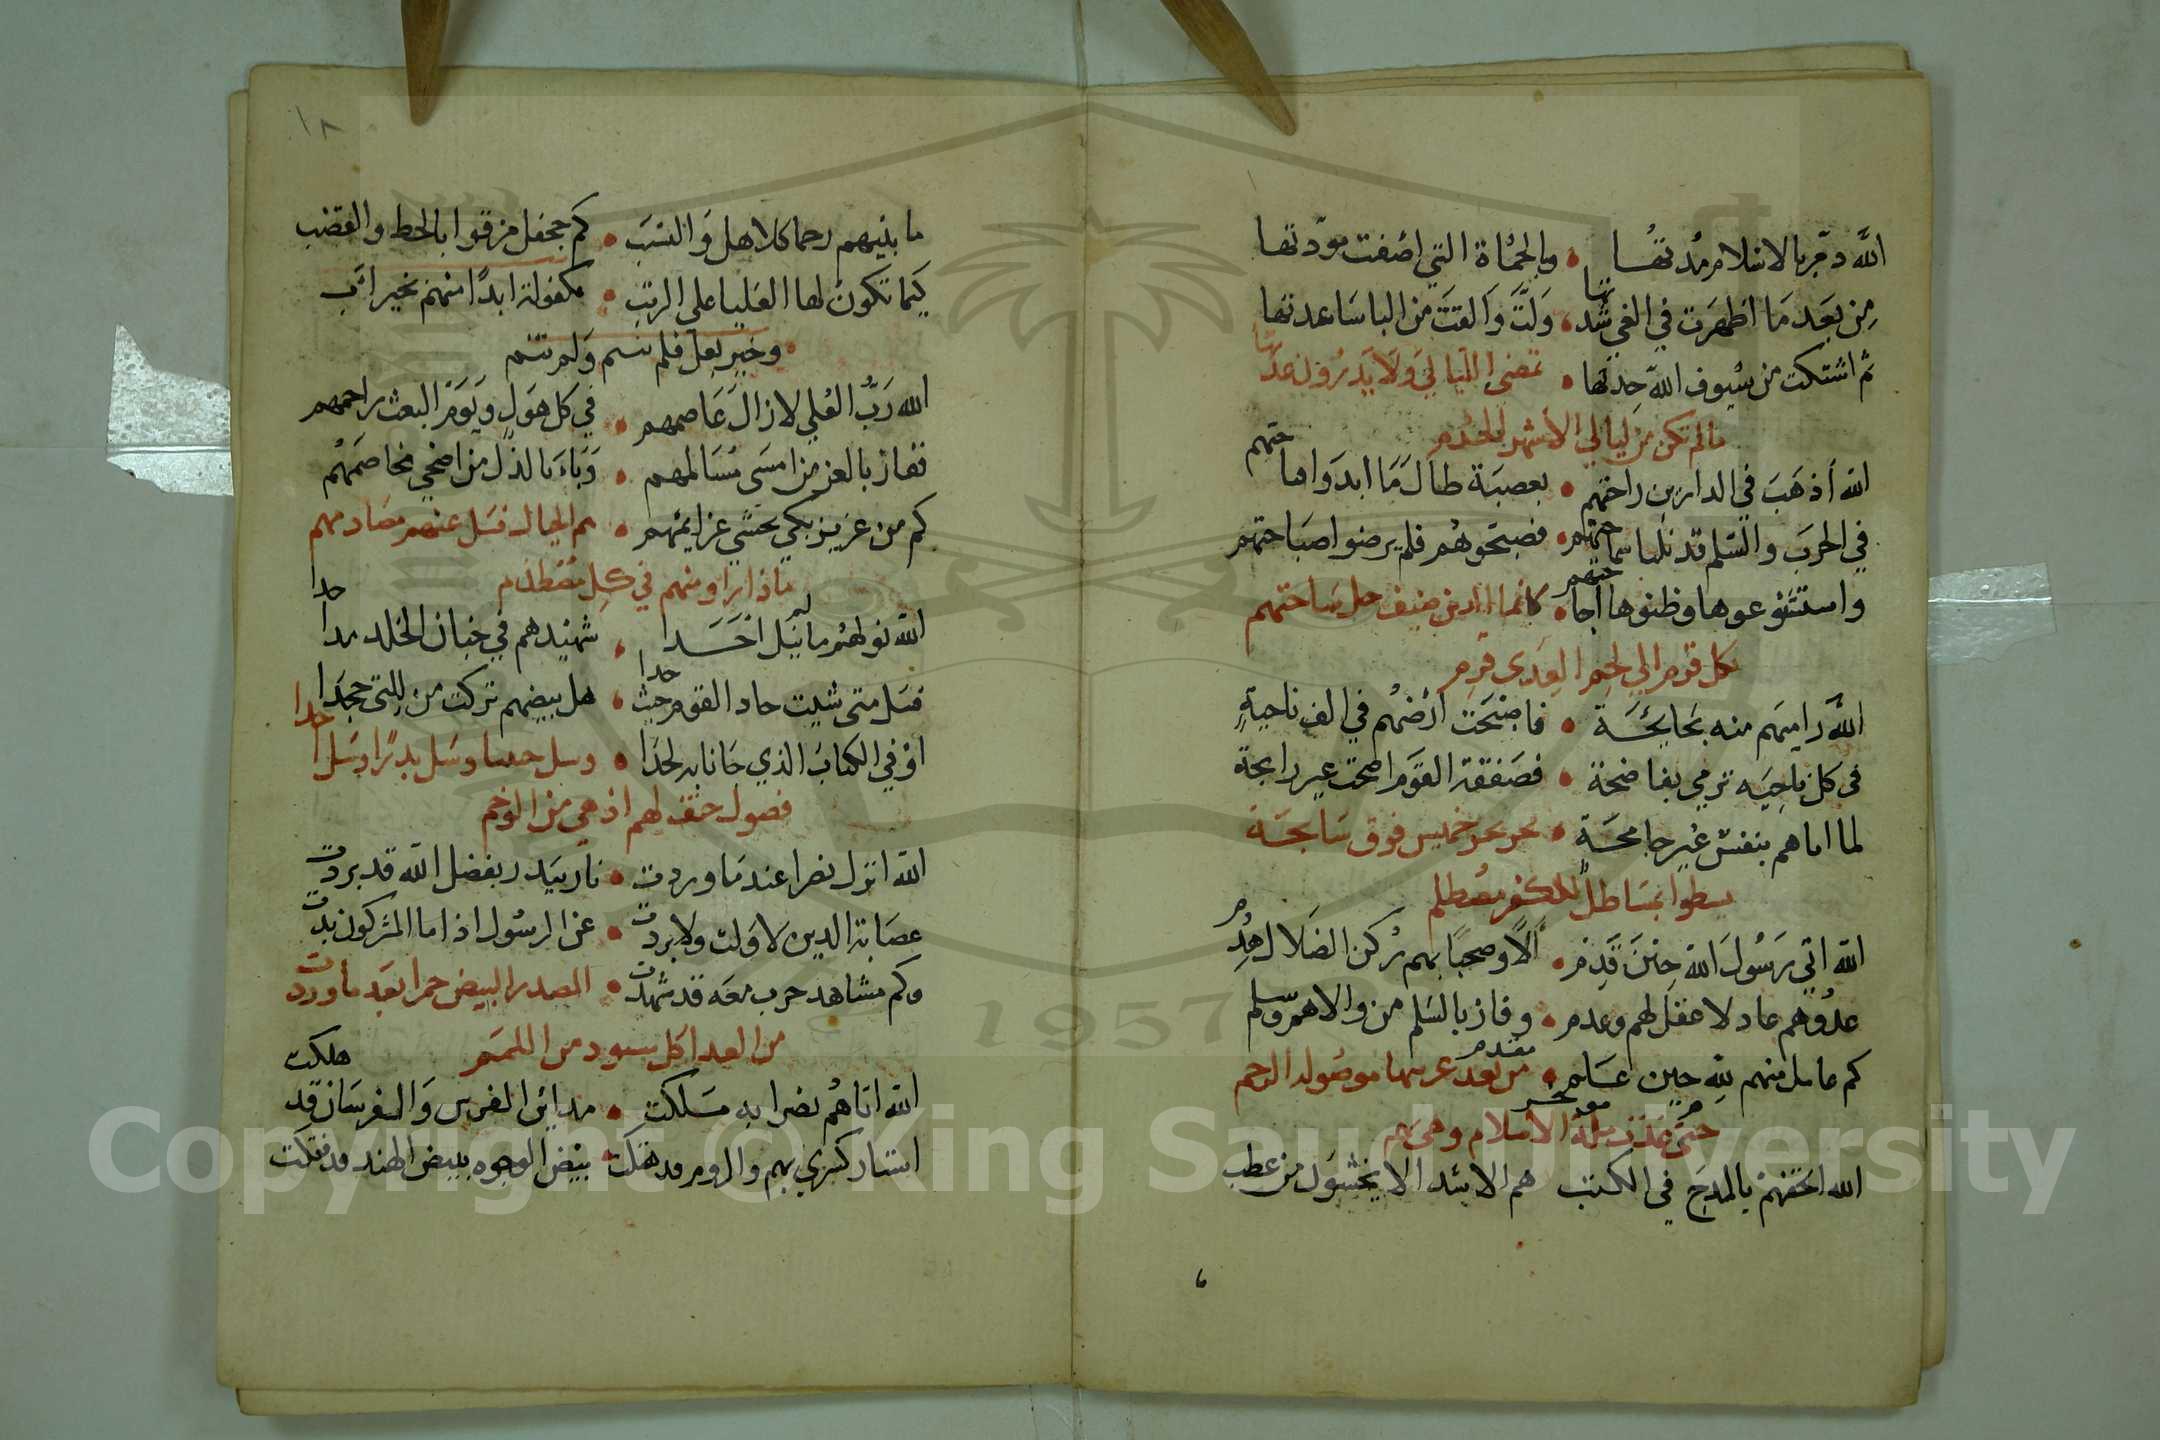 الله دمر بالاسلام مدتها • والحماة التي اضفت مودتها
من بعد ما اظهرت في الغي شدتها • ولت والقت من الباسا عدتها
ثم اشتكت من سيوف الله حدتها • تمضي الليالي ولا يدرون عدتها
مالم تكن من ليالي الأشهر الحرم
الله أذهب في الدارين راحتهم • بعصبة طال ما ابدوا احتهم
في الحرب والسلم قد نلنا سماحتهم • فصبحوهم فلم يرضوا صباحتهم
واستشنوعوها وظنوها اجاحتهم • كانما الدين ضيف حل ساحتهم
بكل قرم الي لحم العدى قرم
الله راميهم منه بجايحة • فاصبحت ارضهم في الف ناحية
في كل ناحيه ترمي بفاضحة • فصفقة القوم اضحت غير رابحة
لما اتاهم بنفس غير جامحة • بحر بحر خميس فوق سابحة
يسطوا بمستاصل للكفر مصطلم
الله اتي رسول الله حين قدم • آلا وصحبا بهم ركن الضلال هدم
عدوهم عاد لا عقل لهم وعدم • وفاز بالسلم من والاهم وسلم
كم عامل منهم لله حين علم • من بعد غربتها موصولة الرحم
حتى غدت ملة الاسلام وهي بهم
الله اتحفهم بالمدح في الكتب هم الاشدا الا يخشون من عطب
١٨
ما بينهم رحما كلاهل والنسب • كم جحفل مزقوا بالخط والقضب
كيما تكون لها العليا على الرتب • مكفولة ابدا منهم بخير اب
• وخير بعل فلم تيتم ولم تئم
الله رب العلي لازال عاصمهم • في كل هول ويوم البعث راحمهم
فقاز بالعز من امسى مسالمهم • وباء بالذل من اضحي مخاصمهم
كم من عزيز بكي يخشي عزايمهم • هم الجبال فسل عنهم مصادمهم
ماذا راوا منهم في كل مصطدم
الله نولهم ما لم ينل احدا • شهيدهم في جنان الخلد
فسل متى شيت حاد القوم حيث حدا • هل بيضهم تركت من للتى جحدا
اوفي الكتاب الذي جانا به لحدا • وسل حنينا وسل بدرا وسل احدا
فصول حتف لهم ادهي من الوخم
الله انزل نصرا عند ما وردت • نار ببدر بفضل الله قد بردت
عصابة الدين لا ولت ولا بردت • عن الرسول اذا ما المشركون بدت
وكم مشاهد حرب معه قد شهدت • المصدر البيض حمرا بعد ما وردت
من العدا كل مسود من اللمم
الله اتاهم نصرا به مسلكت • مدائن الفرس والفرسان قد هلكت
استار كسري بهم والروم قد هتكت • بيض الوجوه ببيض الهند قد فتكت